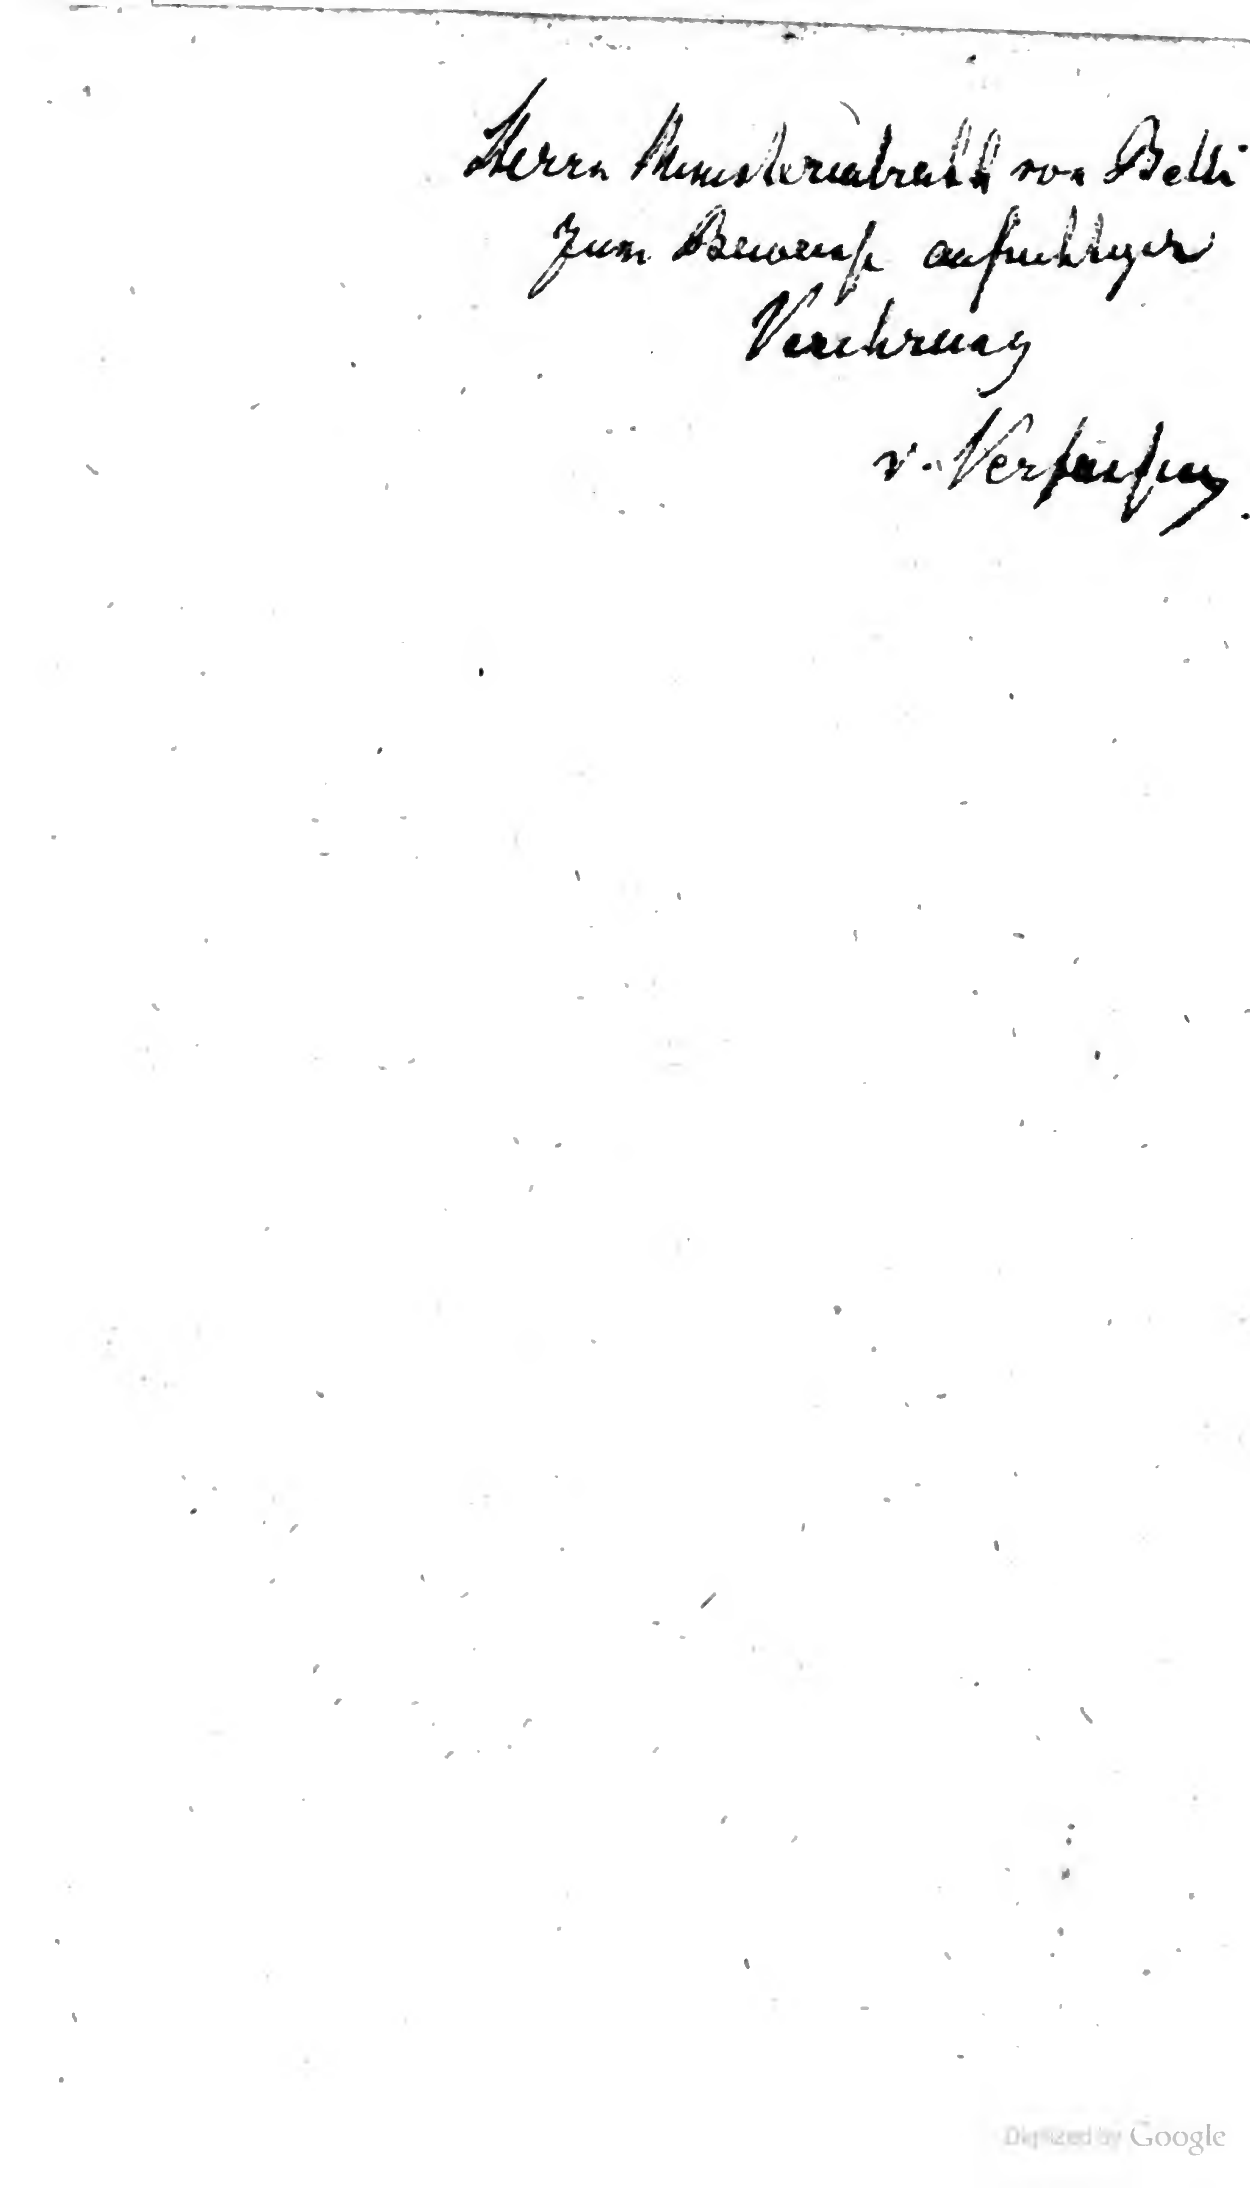 Herrn Ministerialrath von
zum Beweiss aufrichtiger
Verehrung
v. Verfasser.
Digitized by Google